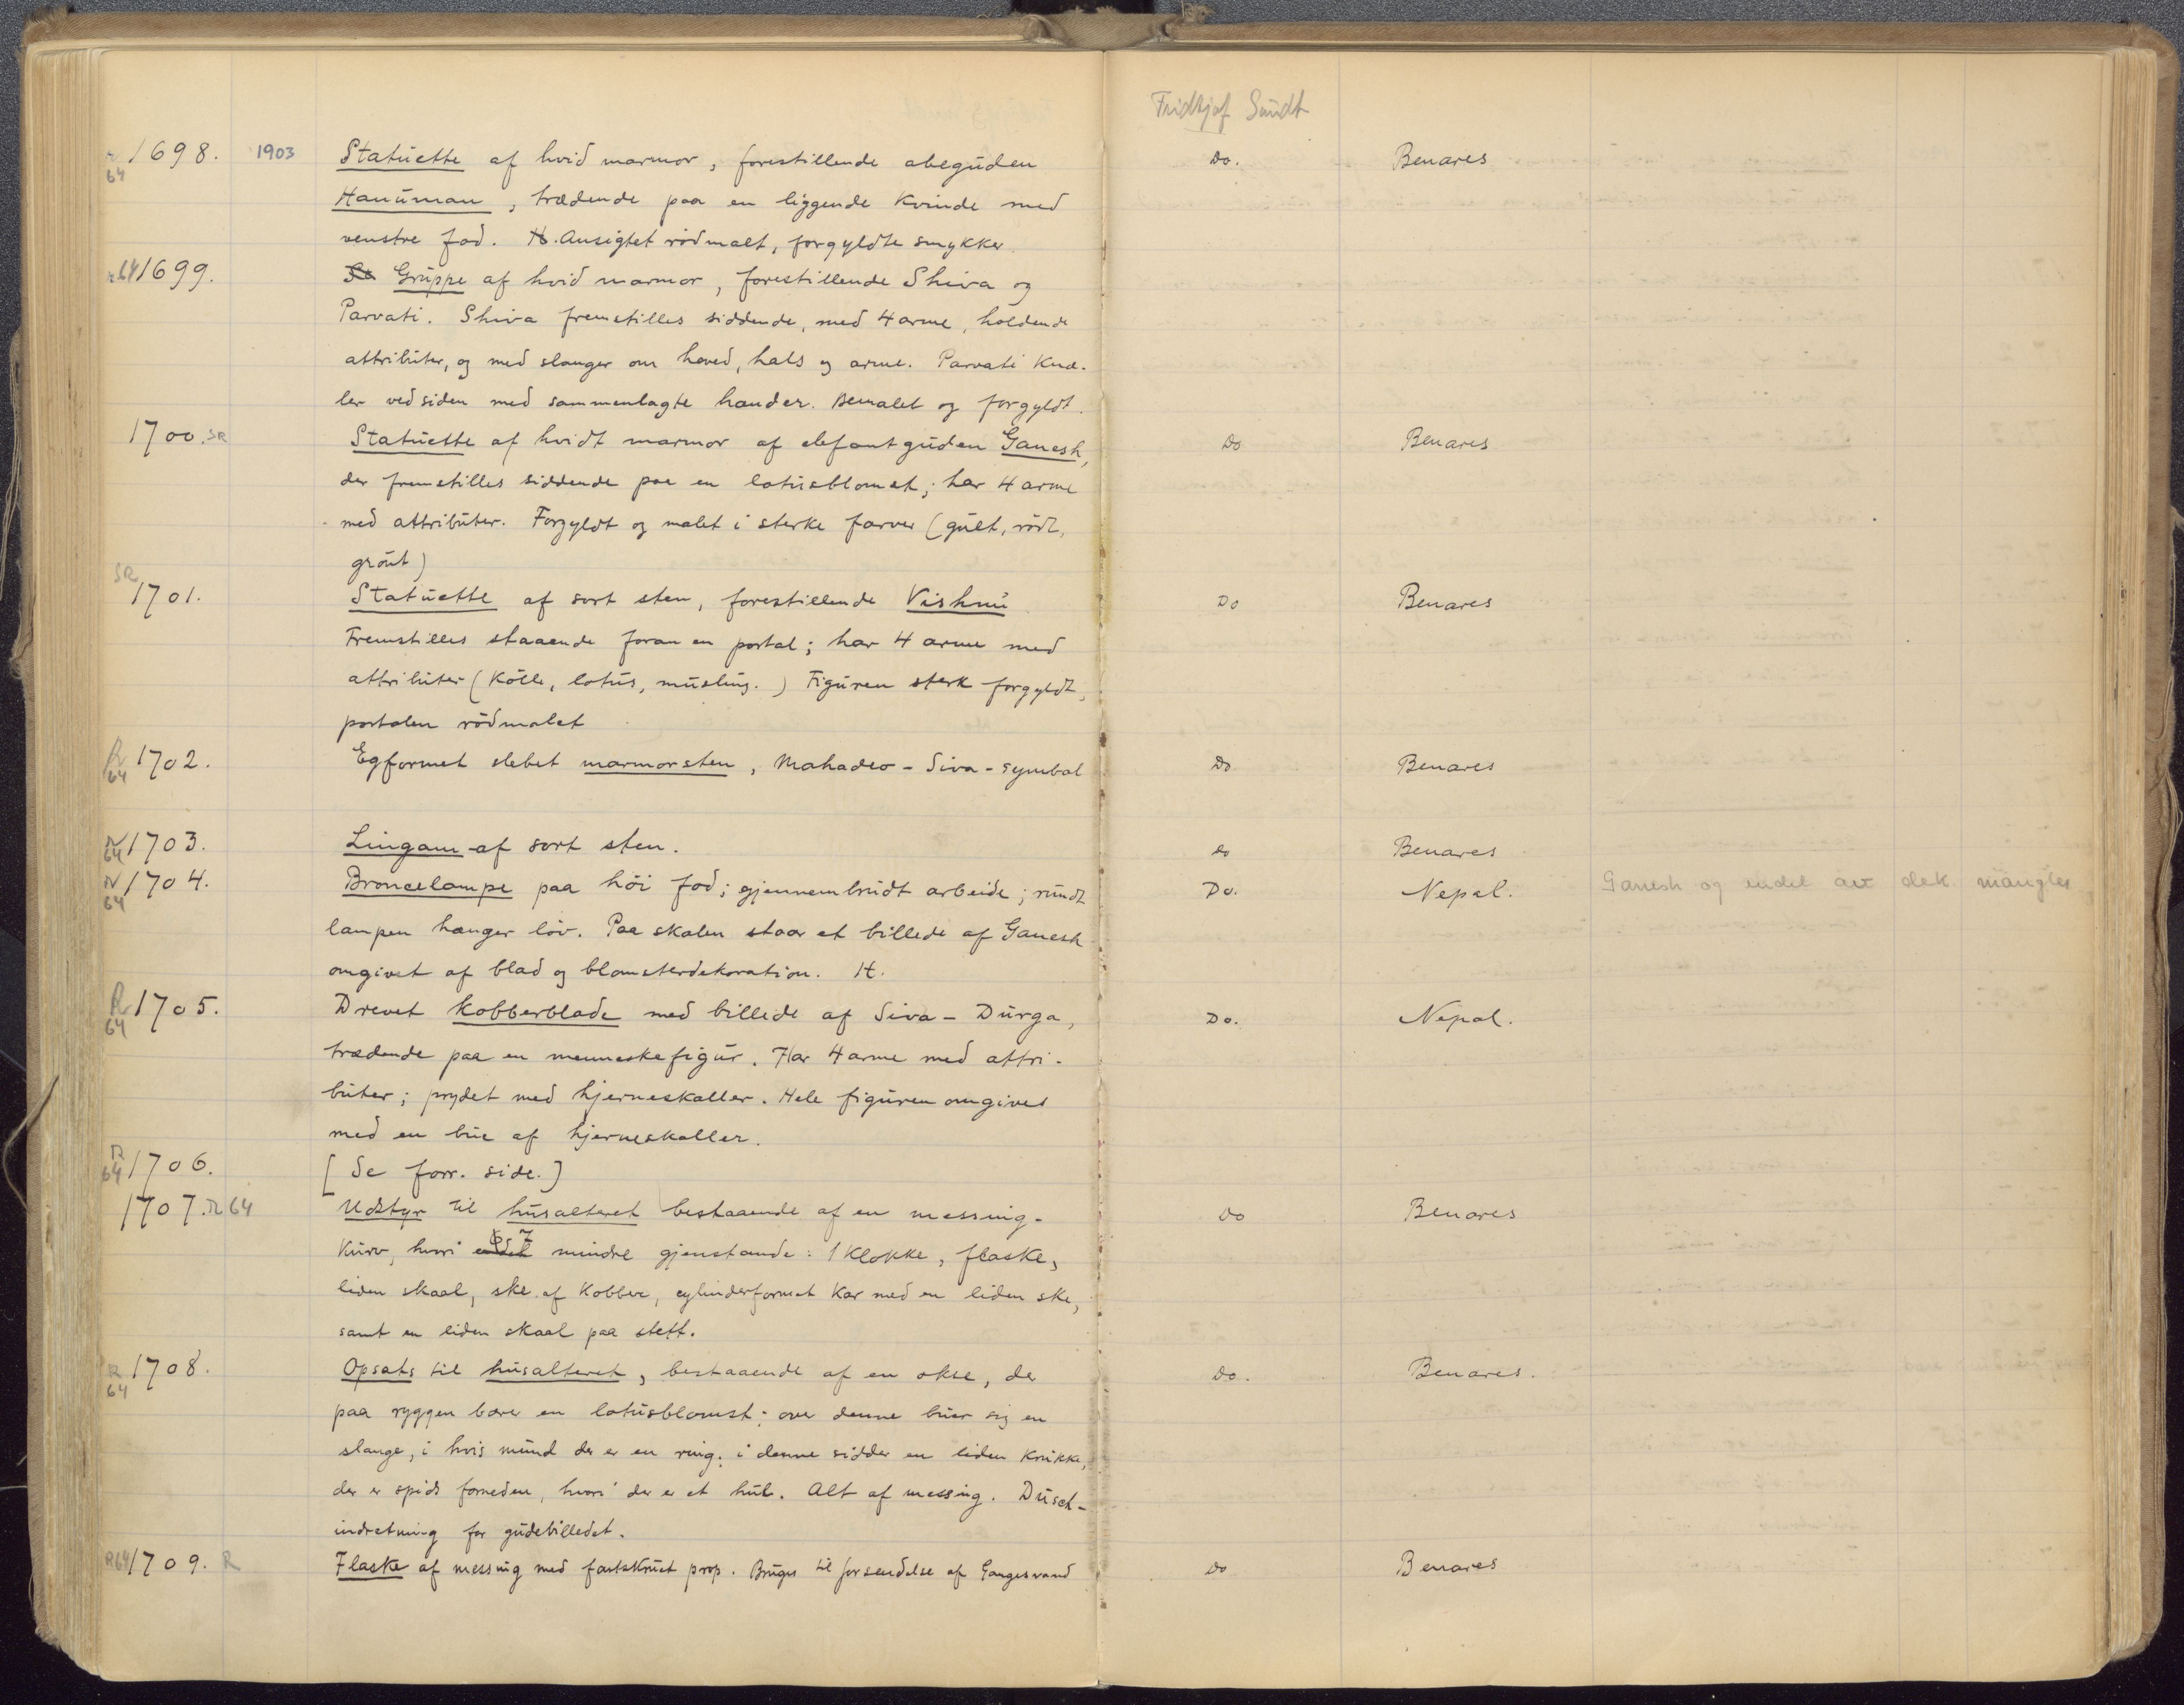 Fridtjof Sundt
R 64 1698. 1903 Statuette af hvid marmor, forestillende abeguden Do. Benares
Hanuman, trædende paa en liggende Kvinde med
venstre fod. H. Ansigtet rödmalt, forgyldte smykker.
R 64 1699. St Gruppe af hvid marmor, forestillende Shiva og
Parvati. Shiva fremstilles siddende, med 4 arme, holdende
attributer, og med slanger om hoved, hals og arme. Parvati Knæ-
ler ved siden med sammenlagte hænder. Bemalet og forgyldt.
1700. SR Statuette af hvidt marmor af elefantguden Ganesh, Do Benares
der fremstilles siddende paa en lotusblomst; har 4 arme
med attributer. Forgyldt og malet i sterke farver (gult, rödt,
grönt)
SR 1701. Statuette af sort sten, forestillende Vishnu. Do Benares
Fremstilles staaende foran en portal; har 4 arme med
attributer (Kölle, lotus, musling.) Figuren sterk forgyldt,
portalen rödmalet
R 64 1702. Egformet slebet marmorsten, Mahadeo - Siva - symbol Do Benares
R 64 1703. Lingam af sort sten. do Benares
R 64 1704. Broncelampe paa höi fod; gjennembrudt arbeide; rundt Do. Nepal. Ganesh og endel av dek. mangler
lampen hænger löv. Paa skalen staar et billede af Ganesh
omgivet af blad og blomsterdekoration. H.
R 64 1705. Drevet kobberblade med billede af Siva - Durga, Do. Nepal.
trædende paa en menneskefigur. Har 4 arme med attri-
buter; prydet med hjerneskaller. Hele figuren omgives
med en bue af hjerneskaller.
R 64 1706. [Se forr. side.]
1707. R 64 Udstyr til husalteret bestaaende af en messing- Do Benares
Kurv, hvori endel 7 mindre gjenstande: 1 Klokke, flaske,
liden skaal, ske af Kobber, cylinderformet Kar med en liden ske,
samt en liden skaal paa stett.
R 64 1708. Opsats til husalteret, bestaaende af en okse, der Do. Benares.
paa ryggen bærer en lotusblomst; over denne buer sig en
slange, i hvis mund der er en ring; i denne sidder en liden Krukke,
der er spids forneden, hvori der er et hul. Alt af messing. Dusch-
indretning for gudebilledet.
R 64 1709. R Flaske af messing med fastskruet prop. Bruges til forsendelse af Gangesvand Do Benares